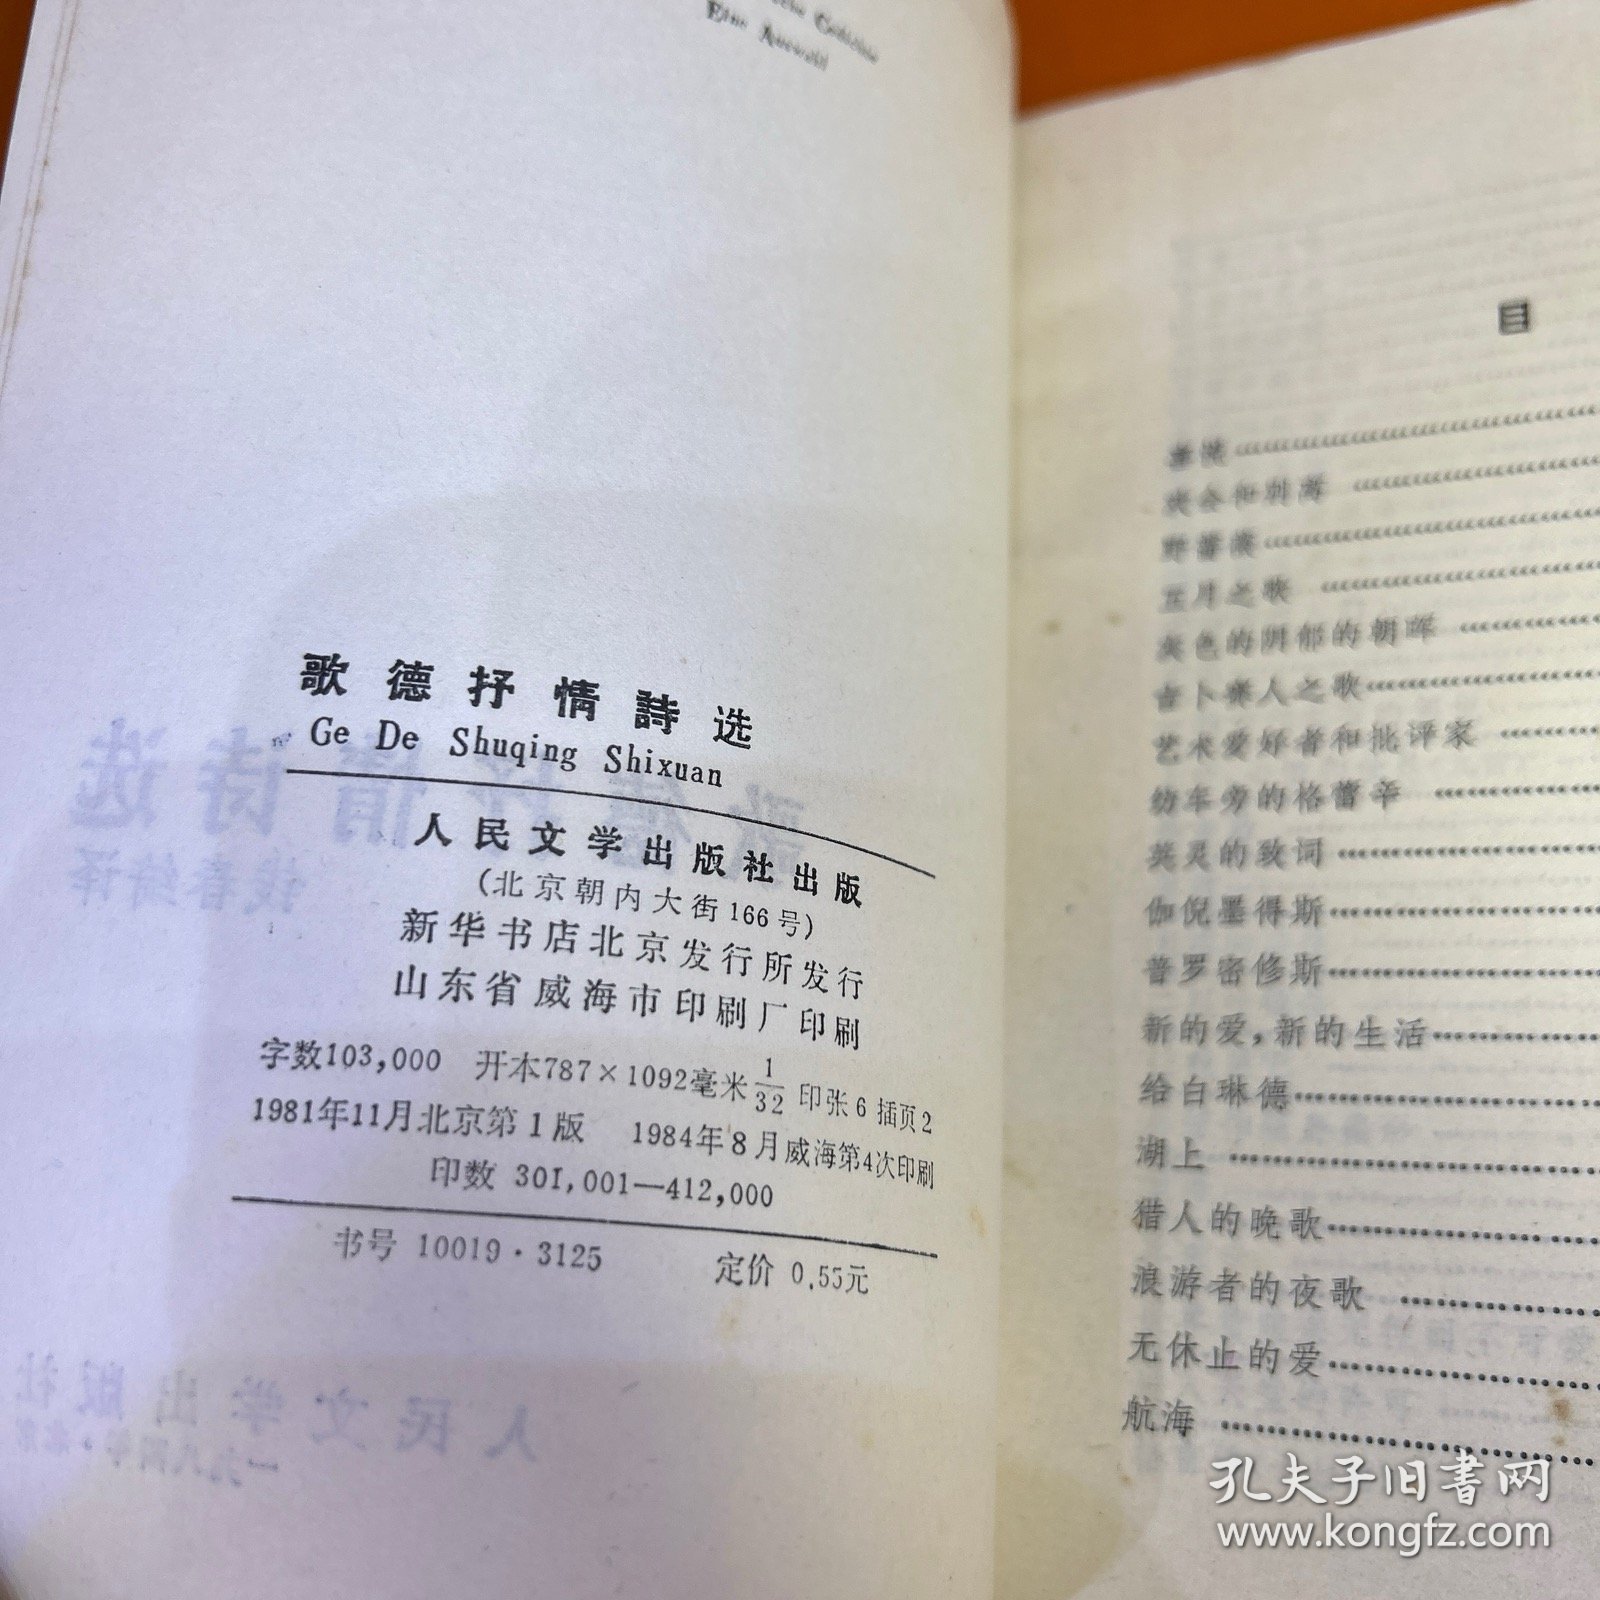 歌德抒情詩选
Ge De Shuqing Shixuan
人民文学出版社出版
(北京朝内大街166号)
新华书店北京发行所发行
山东省威海市印刷厂印刷
字数103,000 开本787×1092毫米1/32 印张6 插页2
1981年11月北京第1版 1984年8月威海第4次印刷
印数 301,001—412,000
书号 10019·3125 定价 0.55元
目
野蔷薇
五月之歌
灰色的阴郁的朝晖
艺术爱好者和批评家
纺车旁的格蕾辛
英灵的致词
伽倪墨得斯
普罗密修斯
新的爱,新的生活
给白琳德
湖上
猎人的晚歌
浪游者的夜歌
无休止的爱
航海
孔夫子旧书网
www.kongfz.com